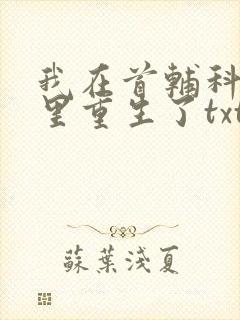 我在首輔科
里重生了txt
蘇葉淺夏